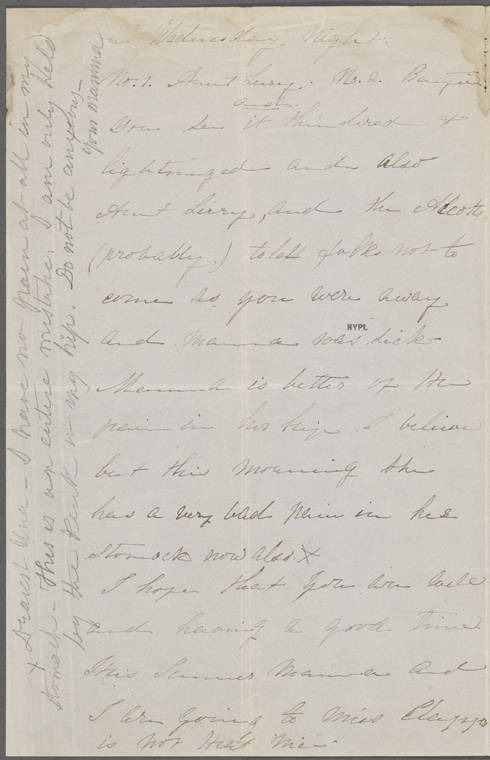 on Wednesday Night.
No. 1. Aunt Lizzy. No. 2.
You see it thundered &
lightninged and also
Aunt Lizzy, and the Alcotts
(probably.) told folks not to
come as you were away
and Mamma was sick
NYPL
Mamma is better of the
pain in her hip I believe
but this morning she
has a very bad pain in her
Stomack now also X
I hope that you are well
and having a good time
This Summer Mamma and
I are going to Miss
is not that nice
X Dearest Una - I have no pain at all in my
stomach - This is an entire mistake. I am only held
by the kink in my hip. Do not be anxious -
Your mamma